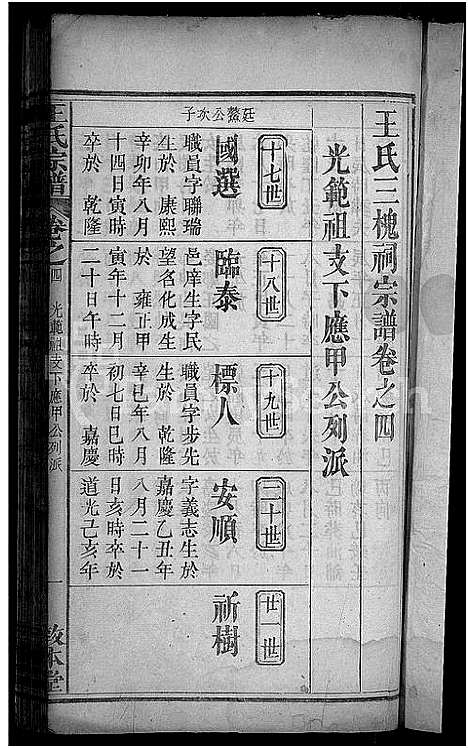 王氏三槐祠宗譜卷之四
光範祖支下應甲公列派
十七世
十八世
十九世
二十世
廿一世
廷鰲公次子
國選
職員字聯瑞
生於 康熙
辛卯年八月
十四日寅時
卒於 乾隆
臨泰
邑庠生字民
望名化成生
於 雍正甲
寅年十二月
二十日午時
標人
職員字步先
生於 乾隆
辛巳年八月
初七日巳時
卒於 嘉慶
安順
字義志生於
嘉慶乙丑年
八月二十一
日亥時卒於
道光己亥年
祈樹
王氏宗譜
卷之四
光範祖支下應甲公列派
一
敦本堂